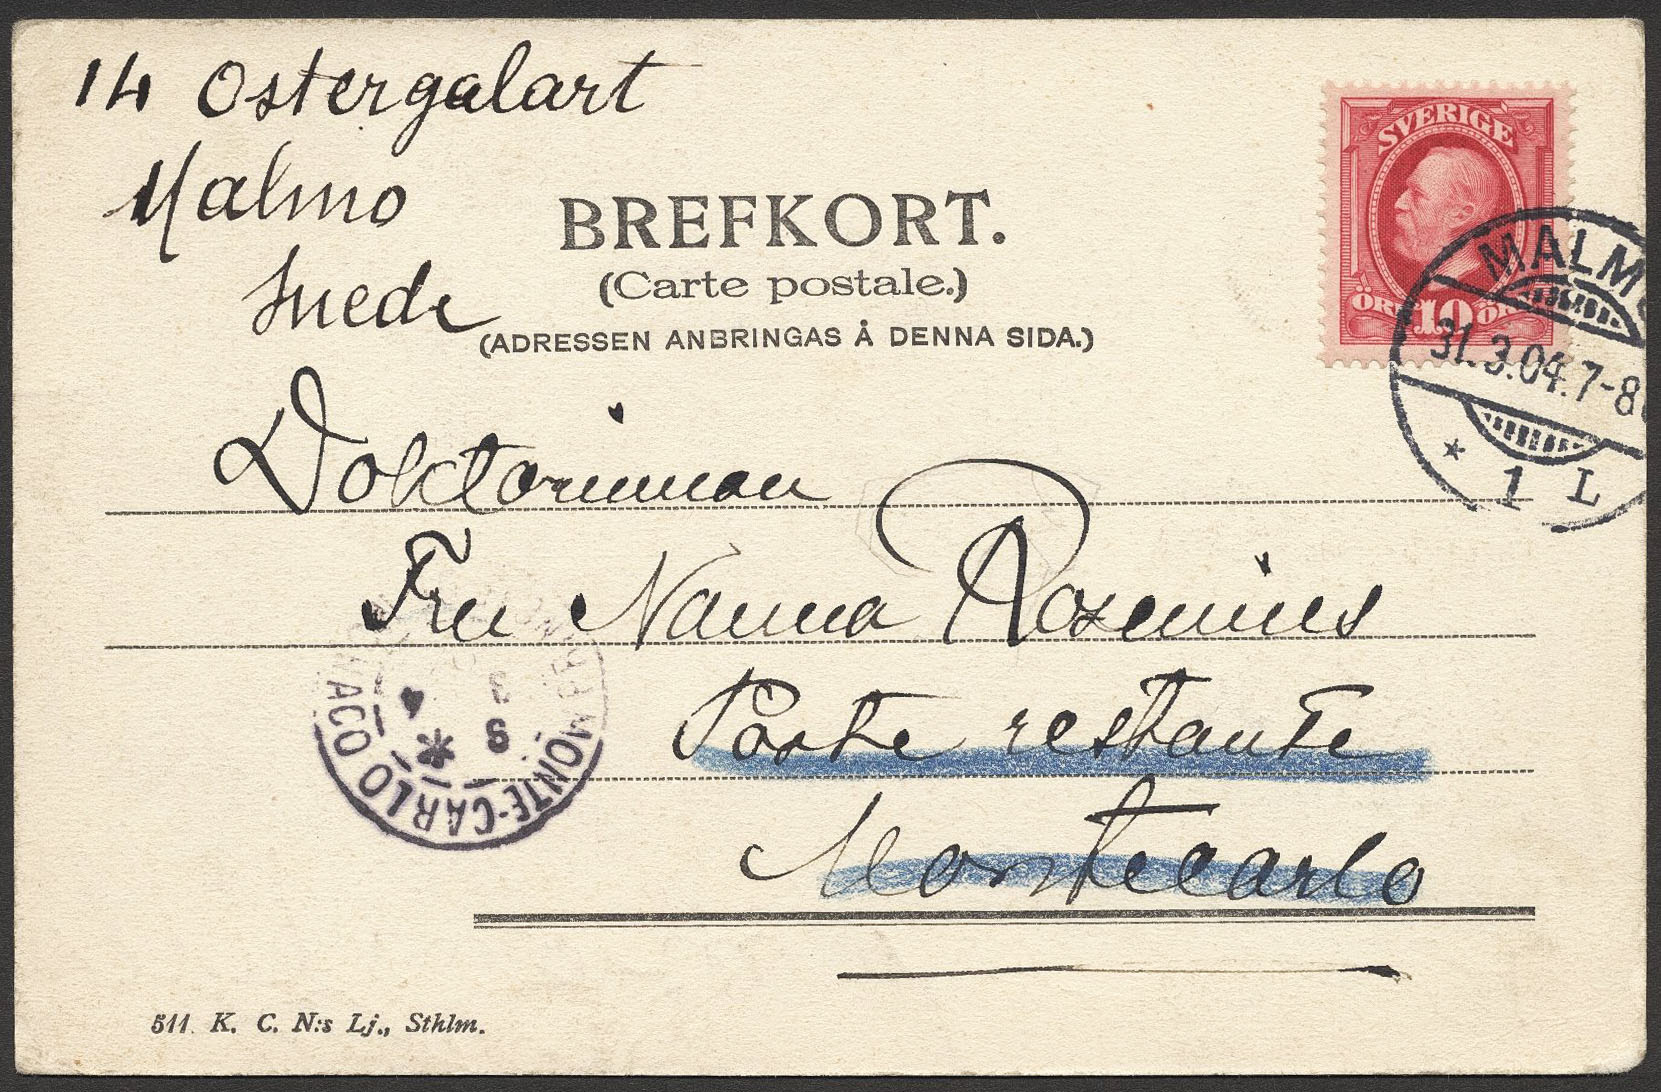 14 Ostergalart
Malmo
Suede
SVERIGE
ÖRE 10 ÖRE
BREFKORT.
(Carte postale.)
(ADRESSEN ANBRINGAS Å DENNA SIDA.)
MALMÖ
31.3.04.7-8
* 1 L
Doktorinnan
Fru Nanna Rosenius
Poste restante
Montecarlo
MONTE-CARLO
MONACO
511. K. C. N:s Lj., Sthlm.